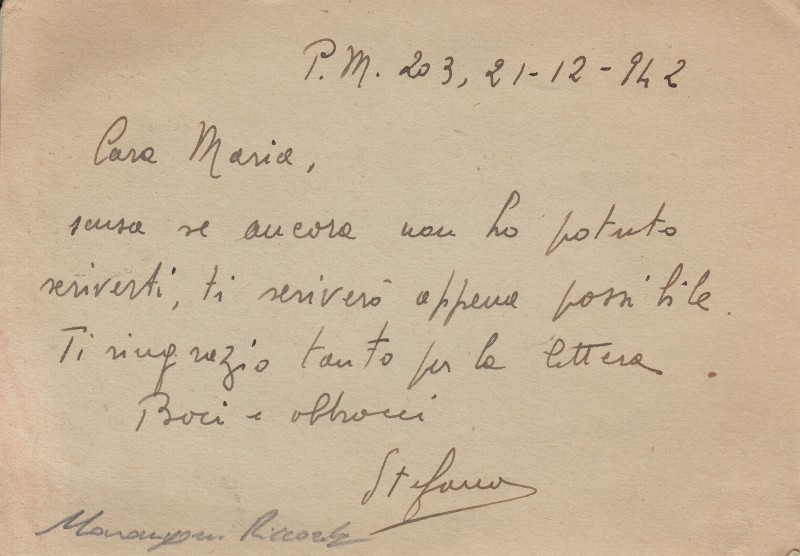 P.M. 203, 21-12-942
Cara Maria,
scusa se ancora non ho potuto
scriverti, ti scriverò appena possibile.
Ti ringrazio tanto per la lettera.
Baci e abbracci
Stefano